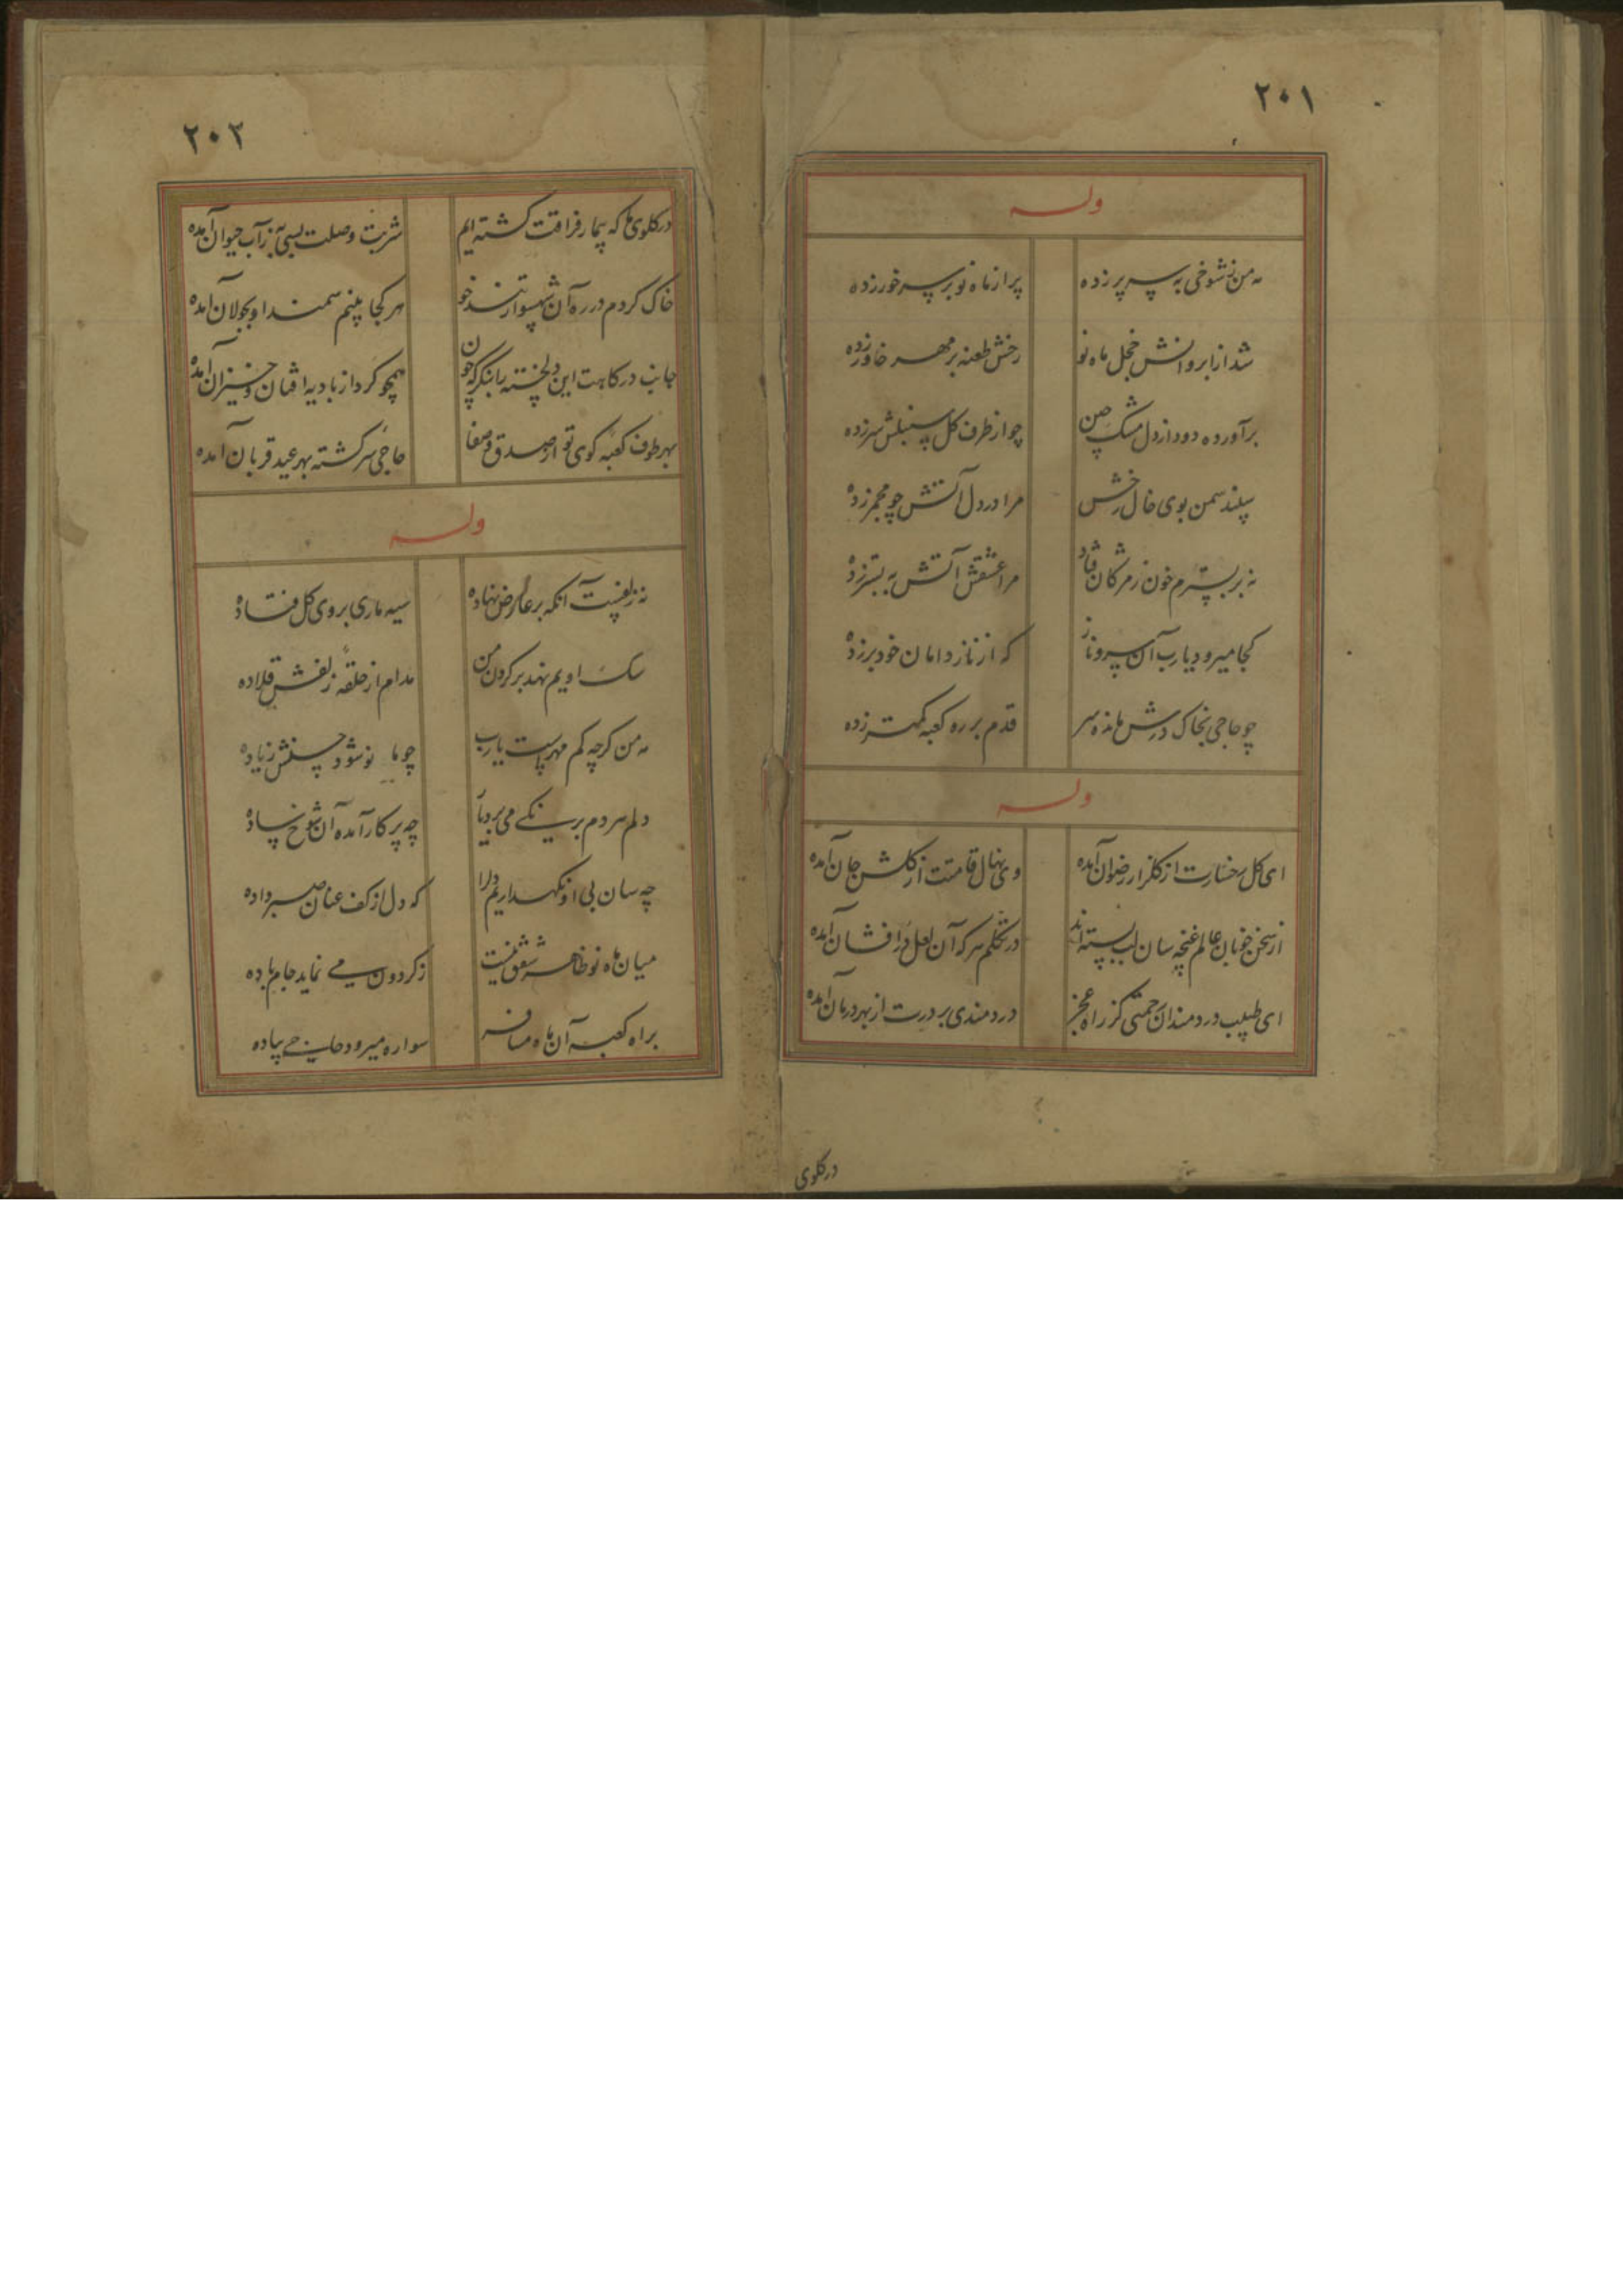 ۲۰۱
وله
مه من ز شوخی به سر پر زده
پر از ماه نو بر سر خور زده
شد از ابروانش خجل ماه نو
رخش طعنه بر مهر خاور زده
برآورده دود از دل مشک چین
چو از طرف کل سنبلش سر زده
سپند سمن بوی خال رخش
مرا در دل آتش چو مجمر زده
نه بر بسترم خون ز مژکان فتاد
مرا عشقش آتش به بستر زده
کجا میرود یارب آن سرو ناز
که از ناز دامان خود بر زده
چو حاجی بخاک درش مانده سر
قدم بر ره کعبه کمتر زده
وله
ای کل رخسارت از کلزار رضوان آمده
وی نهال قامتت از کلشن جان آمده
از سخن خوبان عالم غنچه سان لب بسته اند
در تکلم هر که آن لعل درافشان آمده
ای طبیب دردمندان رحمتی کز راه عجز
دردمندی بر درت از بهر درمان آمده
درکلوی
۲۰۲
در کلوی ما که بیمار فراقت کشته ایم
شربت وصلت بسی به ز آب حیوان آمده
خاک کردم در ره آن شهسوار تند خو
هر کجا بینم سمند او بجولان آمده
جانب درکاهت این دلخسته را بنکر که چون
همچو کرد از بادیه افتان و خیزان آمده
بهر طوف کعبه کوی تو از صدق و صفا
حاجی سرکشته بهر عید قربان آمده
وله
نه زلفست آنکه بر عارض نهاده
سیه ماری بروی کل فتاده
سک اویم نهد بر کردن من
مدام از حلقه زلفش قلاده
مه من کرچه کم مهر است یارب
چو ما نو شود حسنش زیاده
دلم هر دم برنکی می برد یار
چه پر کار آمده آن شوخ ساده
چه سان بی او نکهداریم دل را
که دل از کف عنان صبر داده
میان ماه نو ظاهر شفق نیست
ز کردون می نماید جام باده
براه کعبه آن ماه مسافر
سواره میرود حاجی پیاده